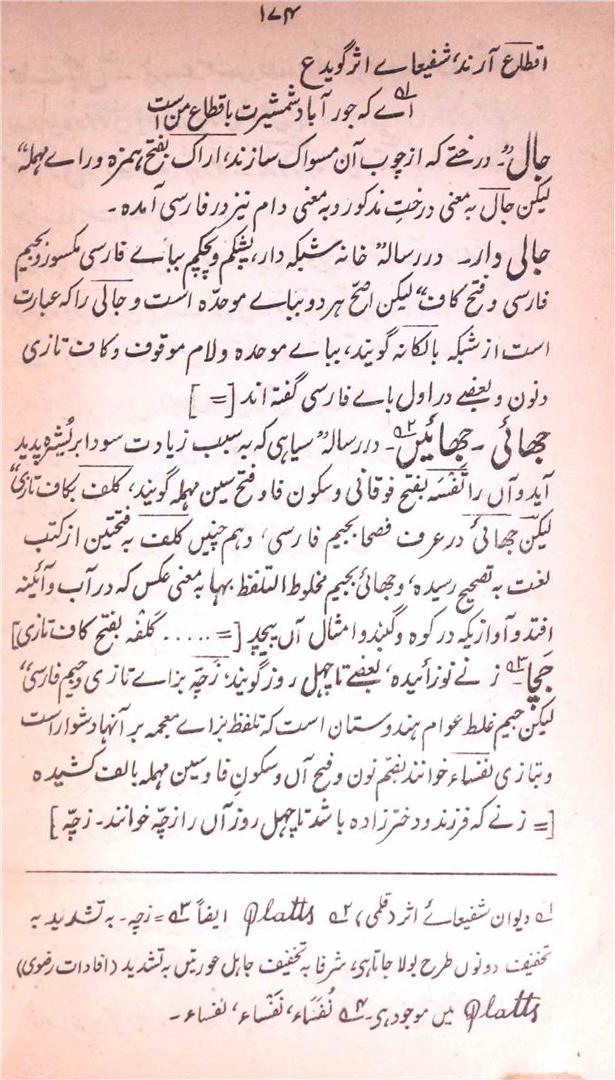 ۱۷۴
اقطاع آرند، شفیعاے اثر گوید ع
اے کہ جور آباد شمشیرت باقطاع من است
جال۔ درختے کہ از چوب آن مسواک سازند، اراک بفتح ہمزہ و راے مہملہ“
لیکن جال بہ معنی درختِ مذکور و بہ معنی دام نیز در فارسی آمدہ۔
جالی وار۔ در رسالہ” خانہ شبکہ دار، پشکم و بچکم بباے فارسی مکسور و بجیم
فارسی و فتح کاف“ لیکن اصح ہر دو بباے موحدہ است و جالی را کہ عبارت
است از شبکہ بالکانہ گویند، بباے موحدہ و لام موقوف و کاف تازی
و نون و بعضے در اول باے فارسی گفتہ اند [=]
جھائی۔ جھائیں۲۔ در رسالہ” سیاہی کہ بہ سبب زیادت سودا بر بُشرہ پدید
آید و آں را تَفْسَہ بفتح فوقانی و سکون فا و فتح سین مہملہ گویند، کلف بکاف تازی“
لیکن جھائی در عرف فصحا بجیم فارسی، و ہم چنیں کلف بہ فتحتین از کتب
لغت بہ تصحیح رسیدہ، و جھائی بجیم مخلوط التلفظ بہا بہ معنی عکس کہ در آب و آئینہ
افتد و آوازیکہ در کوہ و گنبد و امثال آں پیچد [= ..... کَلْفَہ بفتح کاف تازی]
جَچّا۳۔ زنے نوزائیدہ، بعضے تا چہل روز گویند، زَچّہ بزاے تازی و جیم فارسی“
لیکن جیم غلط عوام ہندوستان است کہ تلفظ بزاے معجمہ بر آنہا دشوار است
و بتازی نفساء خوانند بضم نون و فتح آں و سکونِ فا و سین مہملہ بالف کشیدہ
[= زنے کہ فرزند و دختر زادہ باشد تا چہل روز آں را زچّہ خوانند۔ زچّہ]
۱؎ دیوان شفیعاے اثر (قلمی) ۲؎ Platts ایضاً ۳؎ = زچہ۔ بہ تشدید بہ
تخفیف دونوں طرح بولا جاتا ہی، شرفا بہ تخفیف جاہل عورتیں بہ تشدید (افادات رضوی)
Platts میں موجود ہی۔ ۴؎ نُفَسَاء، نَفْسَاء، نفساء۔